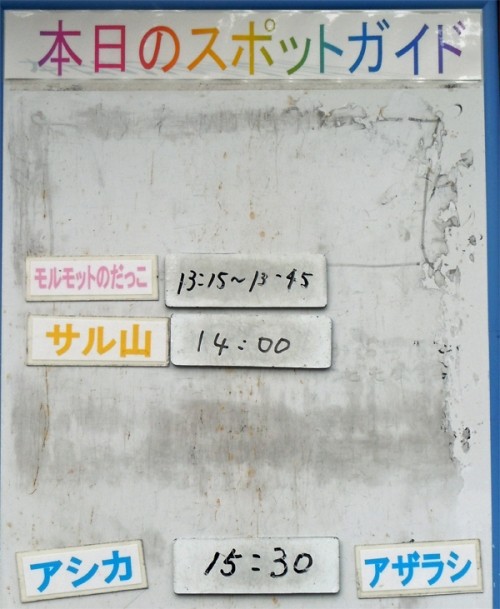 本日のスポットガイド
モルモットのだっこ 13:15~13:45
サル山 14:00
アシカ 15:30 アザラシ